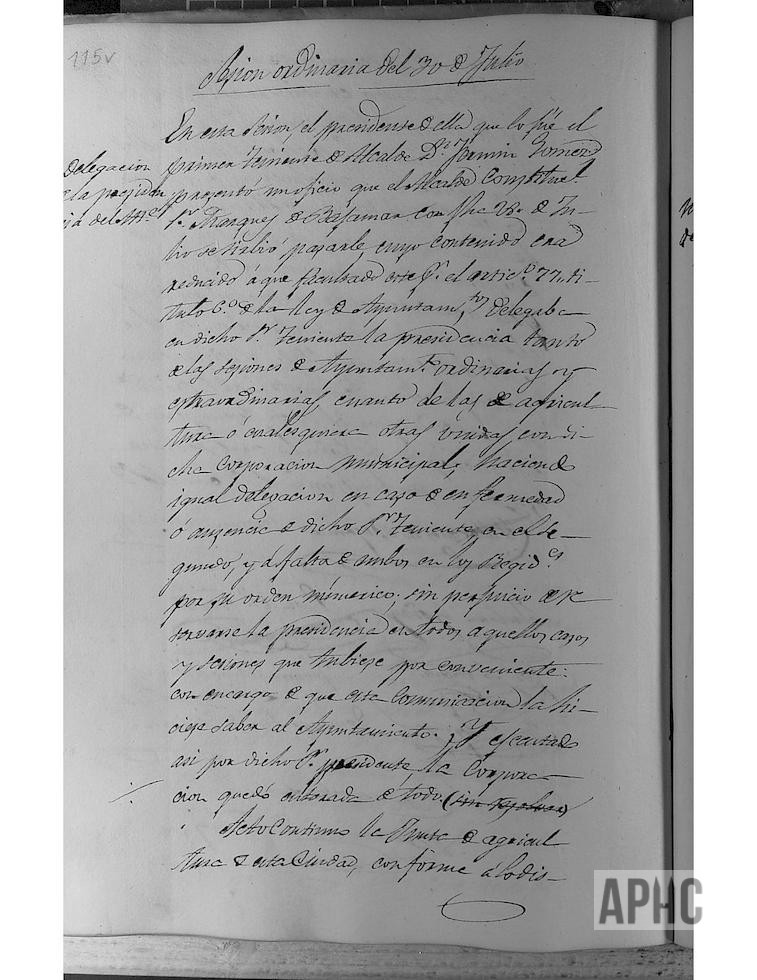 115v
Sesion ordinaria del 30 de Julio
En esta Sesion, el presidente de ella que lo fué el
delegacion
primer Teniente de Alcalde Dn. Fermin Gomez
de la presiden
presentó un oficio que el Alcalde Constitucl.
cia del Alce.
Sr. Marques de Bajamar con fha 28 de Ju-
lio se sirbió pasarle, cuyo contenido era
reducido á que facultado este Sr. el articº. 77, ti-
tulo 6.º de la ley de Ayuntamtos, delegaba
en dicho Sr. Teniente la presidencia tanto
de las sesiones de Ayuntamt. ordinarias y
estraordinarias, cuanto de las de agricul-
tura ó cualesquiera otras unidas con di-
cha corporacion municipal; haciendo
igual delegacion en caso de enfermedad
ó ausencia de dicho Sr. Teniente, en el se-
gundo, y á falta de ambos en los Regid.es
por su orden númerico; sin perjuicio de re
servarse la presidencia en todos aquellos casos
y sesiones que tubiese por conveniente:
con encargo de que esta comunicacion la hi-
ciese saber al Ayuntamiento. Y ejecutado
asi por dicho Sr. presidente, la corpora-
cion quedó enterada de todo (sin resolver)
Acto continuo la Junta de agricul
tura de esta Ciudad, conforme á lo dis-
APHC